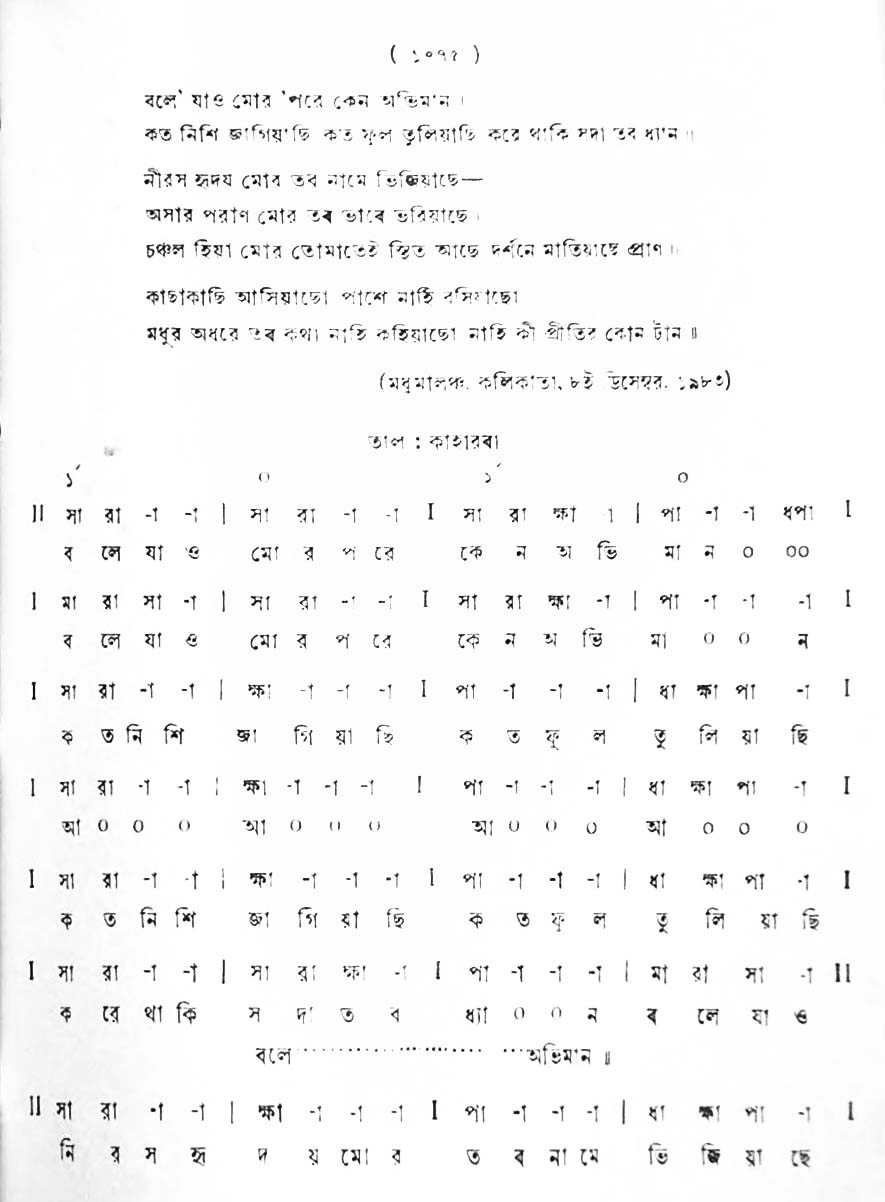 ( ১০৭২ )
বলে' যাও মোর 'পরে কেন অভিমান ।
কত নিশি জাগিয়াছি কত ফুল তুলিয়াছি করে থাকি সদা তব ধ্যান ॥
নীরস হৃদয় মোর তব নামে ভিজিয়াছে—
অসার পরাণ মোর তব ভাবে ভরিয়াছে ।
চঞ্চল হিয়া মোর তোমাতেই স্থিত আছে দর্শনে মাতিয়াছে প্রাণ ॥
কাছাকাছি আসিয়াছো পাশে নাহি বসিয়াছো
মধুর অধরে তব কথা নাহি কহিয়াছো নাহি কী প্রীতির কোন টান ॥
(মধুমালঞ্চ, কলিকাতা, ৮ই ডিসেম্বর, ১৯৮৩)
তাল : কাহারবা
১´ ০ ১´ ০
II সা রা -া -া | সা রা -া -া I সা রা ক্ষা া | পা -া -া ধপা I
ব লে যা ও মো র প রে কে ন অ ভি মা ন ০ ০০
I মা রা সা -া | সা রা -া -া I সা রা ক্ষা -া | পা -া -া -া I
ব লে যা ও মো র প রে কে ন অ ভি মা ০ ০ ন
I সা রা -া -া | ক্ষা -া -া -া I পা -া -া -া | ধা ক্ষা পা -া I
ক ত নি শি জা গি য়া ছি ক ত ফু ল তু লি য়া ছি
I সা রা -া -া | ক্ষা -া -া -া I পা -া -া -া | ধা ক্ষা পা -া I
আ ০ ০ ০ আ ০ ০ ০ আ ০ ০ ০ আ ০ ০ ০
I সা রা -া -া | ক্ষা -া -া -া I পা -া -া -া | ধা ক্ষা পা -া I
ক ত নি শি জা গি য়া ছি ক ত ফু ল তু লি য়া ছি
I সা রা -া -া | সা রা ক্ষা -া I পা -া -া -া | মা রা সা -া II
ক রে থা কি স দা ত ব ধ্যা ০ ০ ন ব লে যা ও
বলে ........................ ...অভিমান ॥
II সা রা -া -া | ক্ষা -া -া -া I পা -া -া -া | ধা ক্ষা পা -া I
নি র স হৃ দ য় মো র ত ব না মে ভি জি য়া ছে